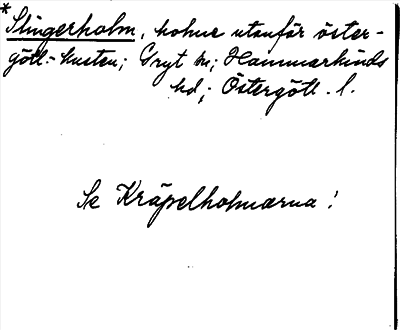 * Slingerholm, holme utanför öster-
götl.-kusten; Gryt sn; Hammarkinds
hd; Östergötl. l.
Se Kräpelholmarna!